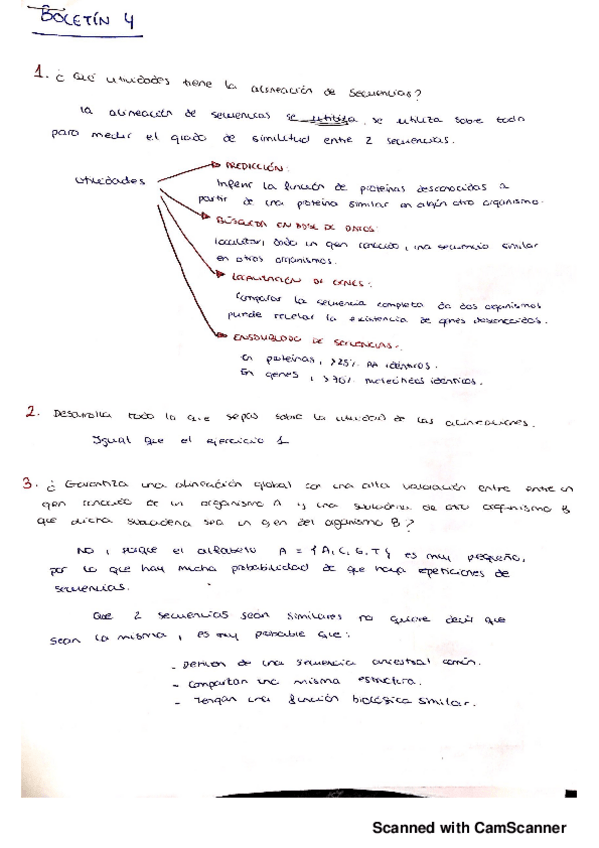 BOLETÍN 4
1. ¿ Qué utilidades tiene la alineación de secuencias?
La alineación de secuencias se utiliza se utiliza sobre todo
para medir el grado de similitud entre 2 secuencias.
utilidades
PREDICCIÓN:
Inferir la función de proteínas desconocidas a
partir de una proteína similar en algún otro organismo.
BÚSQUEDA EN BASE DE DATOS:
localizar, dado un gen conocido, una secuencia similar
en otros organismos.
LOCALIZACIÓN DE GENES:
Comparar la secuencia completa de dos organismos
puede revelar la existencia de genes desconocidos.
ENSAMBLADO DE SECUENCIAS:
En proteínas, >25% AA idénticos.
En genes, >70% nucleótidos idénticos.
2. Desarrolla todo lo que sepas sobre la utilidad de las alineaciones.
Igual que el ejercicio 1
3. ¿ Garantiza una alineación global con una alta valoración entre entre un
gen conocido de un organismo A y una subcadena de otro organismo B
que dicha subcadena sea un gen del organismo B?
NO, porque el alfabeto A = {A, C, G, T} es muy pequeño,
por lo que hay mucha probabilidad de que haya repeticiones de
secuencias.
Que 2 secuencias sean similares no quiere decir que
sean la misma, es muy probable que:
- Deriven de una secuencia ancestral común.
- Compartan una misma estructura.
- Tengan una función biológica similar.
Scanned with CamScanner